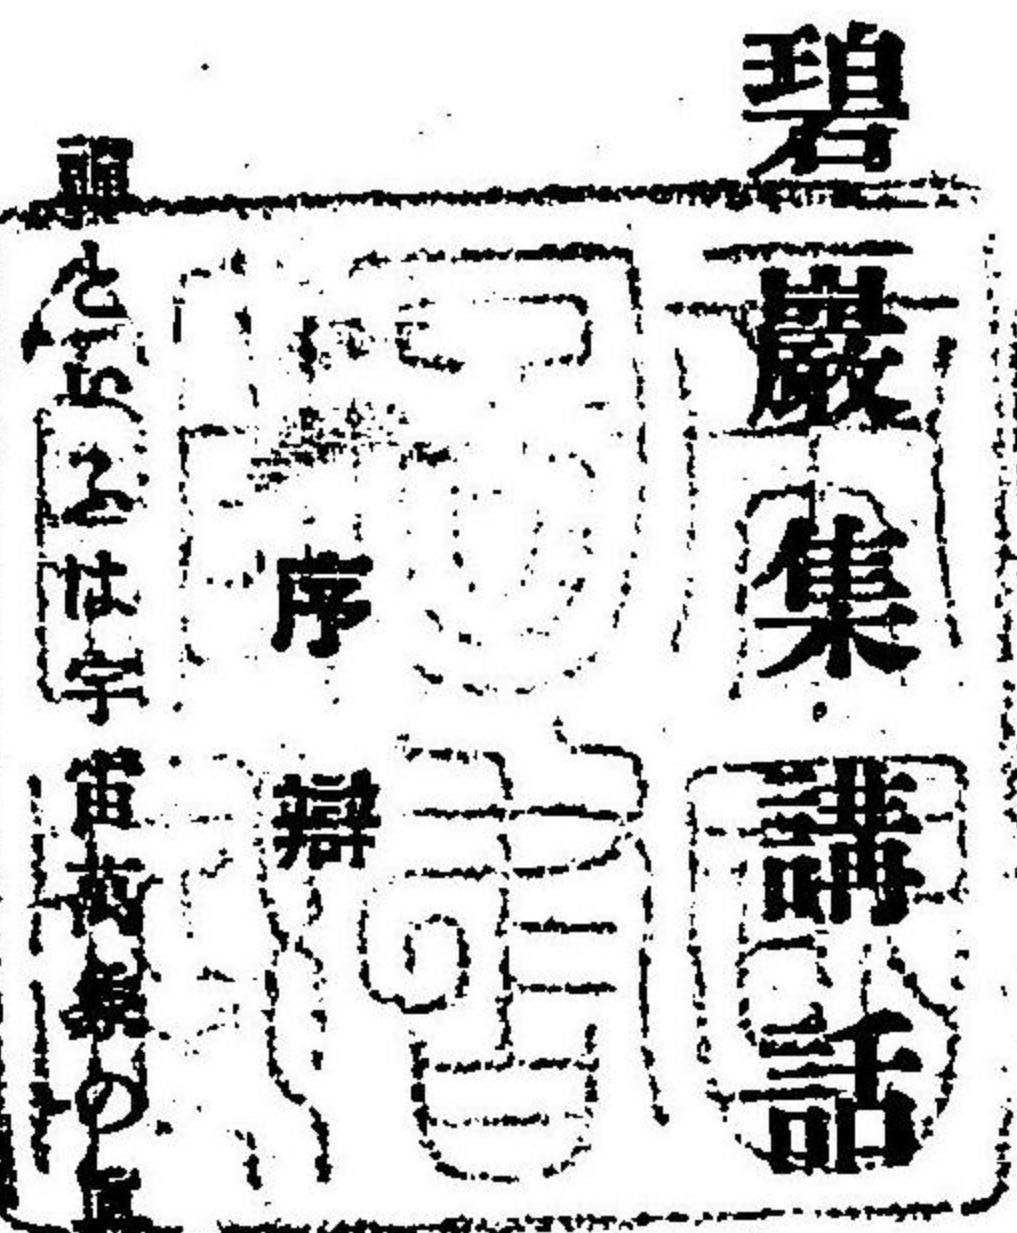 碧巖集講話
序辯
禪と云ふは宇宙萬象の